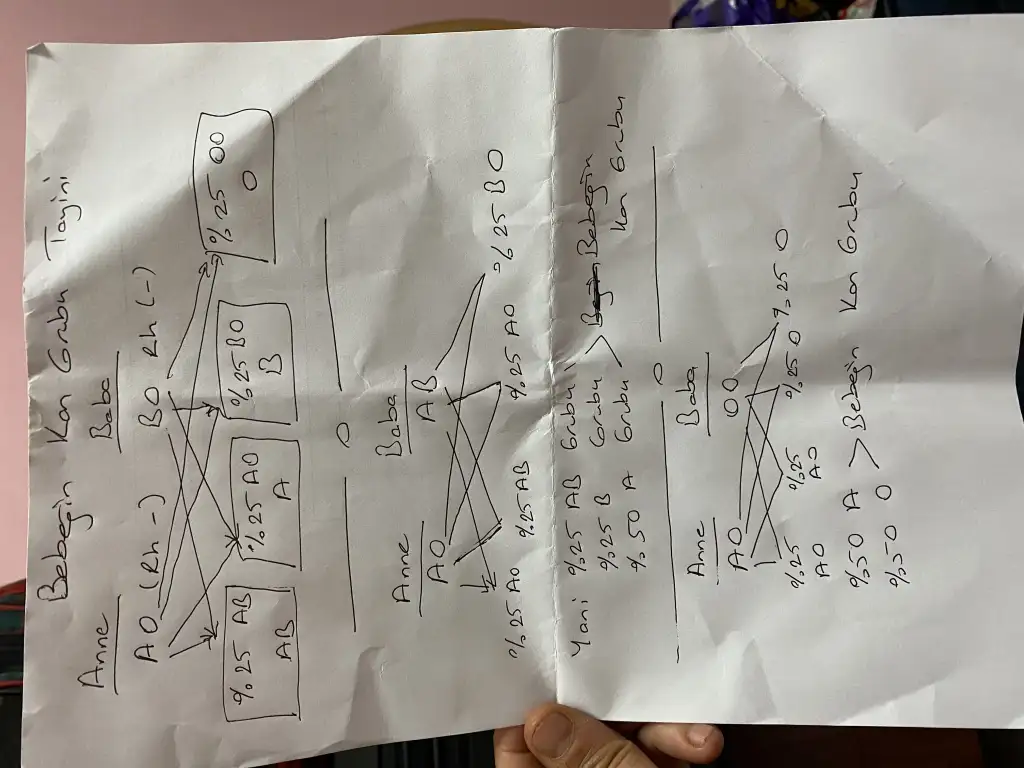 Bebegin Kan Grubu Tayini
Anne Baba
AO (Rh-) BO Rh (-)
%25 AB %25 AO %25 BO %25 OO
AB A B O
O
Anne Baba
AO AB
%25 AO %25 AB %25 AO %25 BO
Yani %25 AB Grubu
%25 B Grubu > Bebegin
%50 A Grubu Kan Grubu
O
Anne Baba
AO OO
%25 %25 %25 O %25 O
AO AO
%50 A > Bebegin Kan Grubu
%50 O